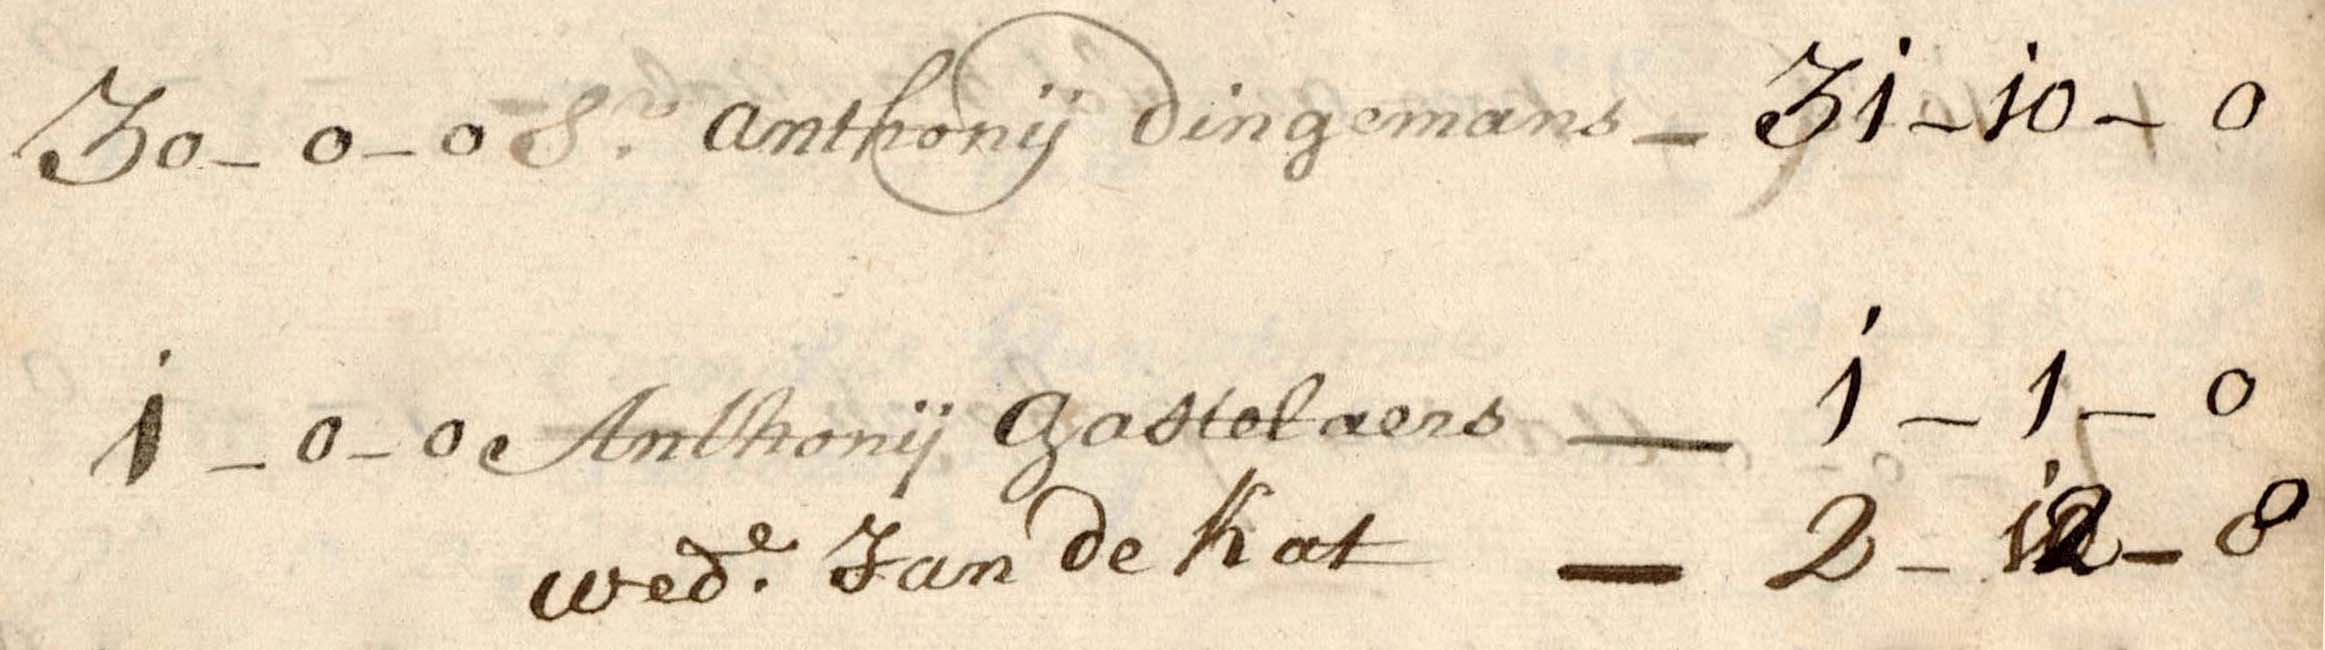 30 - 0 - 0 Sr. Anthonij Dingemans - 31 - 10 - 0
1 - 0 - 0 Anthonij Gastelaers - 1 - 1 - 0
wede. Jan de Kat - 2 - 12 - 8